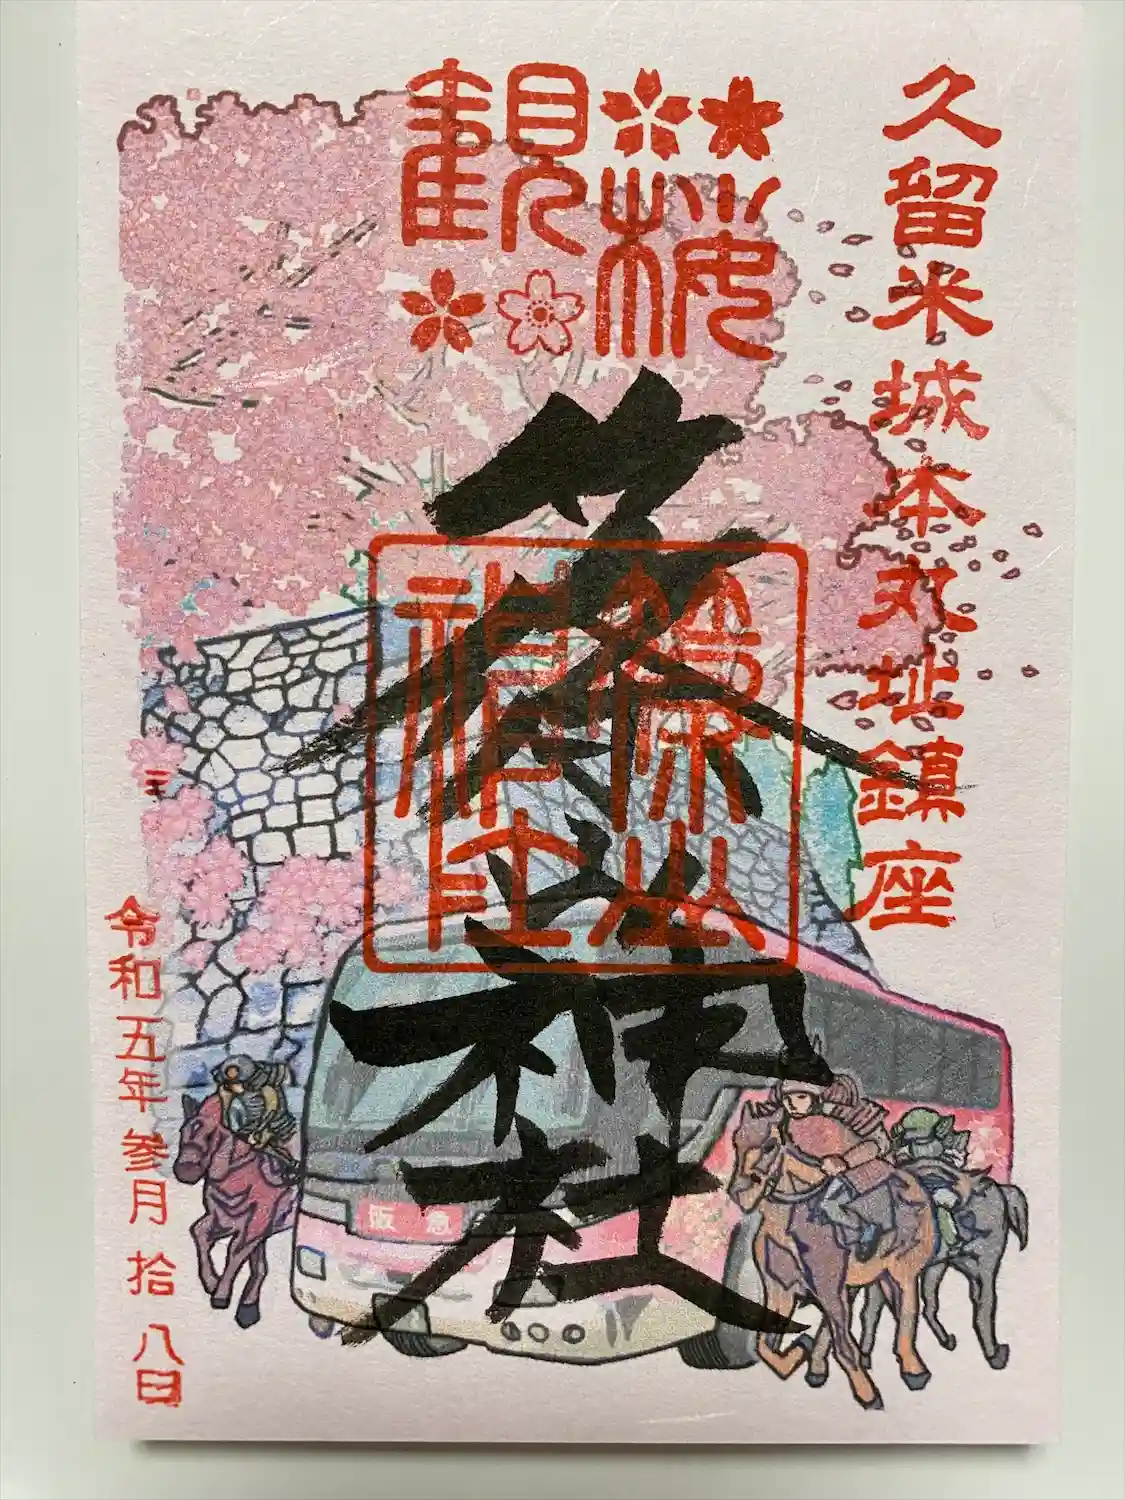 久留米城本丸址鎮座
桜
観
篠山神社
篠山
神社
阪急
令和五年参月拾八日